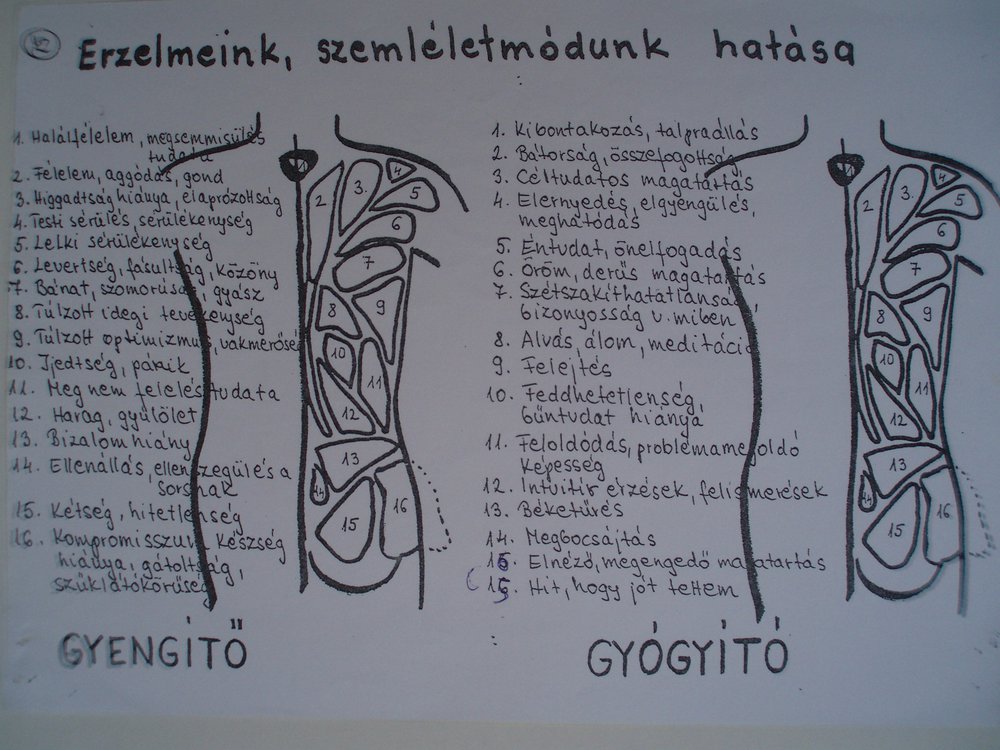 Erzelmeink, szemléletmódunk hatása
1. Halálfélelem, megsemmisülés
tudata
2. Félelem, aggódás, gond
3. Higgadtság hiánya, elaprózottság
4. Testi sérülés, sérülékenység
5. Lelki sérülékenység
6. Levertség, fásultság, közöny
7. Bánat, szomorúság, gyász
8. Túlzott idegi tevékenység
9. Túlzott optimizmus, vakmerőség
10. Ijedtség, pánik
11. Meg nem felelés tudata
12. Harag, gyűlölet
13. Bizalomhiány
14. Ellenállás, ellenszegülés a
sorsnak
15. Kétség, hitetlenség
16. Kompromisszum készség
hiánya, gátoltság,
szűklátókörűség
GYENGÍTŐ
1 2 3. 4 5 6 7 8 9 10 11 12 13 14 15 16
1. Kibontakozás, talpraállás
2. Bátorság, összefogottság
3. Céltudatos magatartás
4. Elernyedés, elgyengülés,
meghatódás
5. Éntudat, önelfogadás
6. Öröm, derűs magatartás
7. Szétszakíthatatlanság,
bizonyosság v. miben
8. Alvás, álom, meditáció
9. Felejtés
10. Feddhetetlenség,
bűntudat hiánya
11. Feloldódás, problémamegoldó
képesség
12. Intuitív érzések, felismerések
13. Béketűrés
14. Megbocsájtás
16. Elnéző, megengedő magatartás
15. Hit, hogy jót tettem
GYÓGYÍTÓ
1 2 3. 4 5 6 7 8 9 10 11 12 13 14 15 16